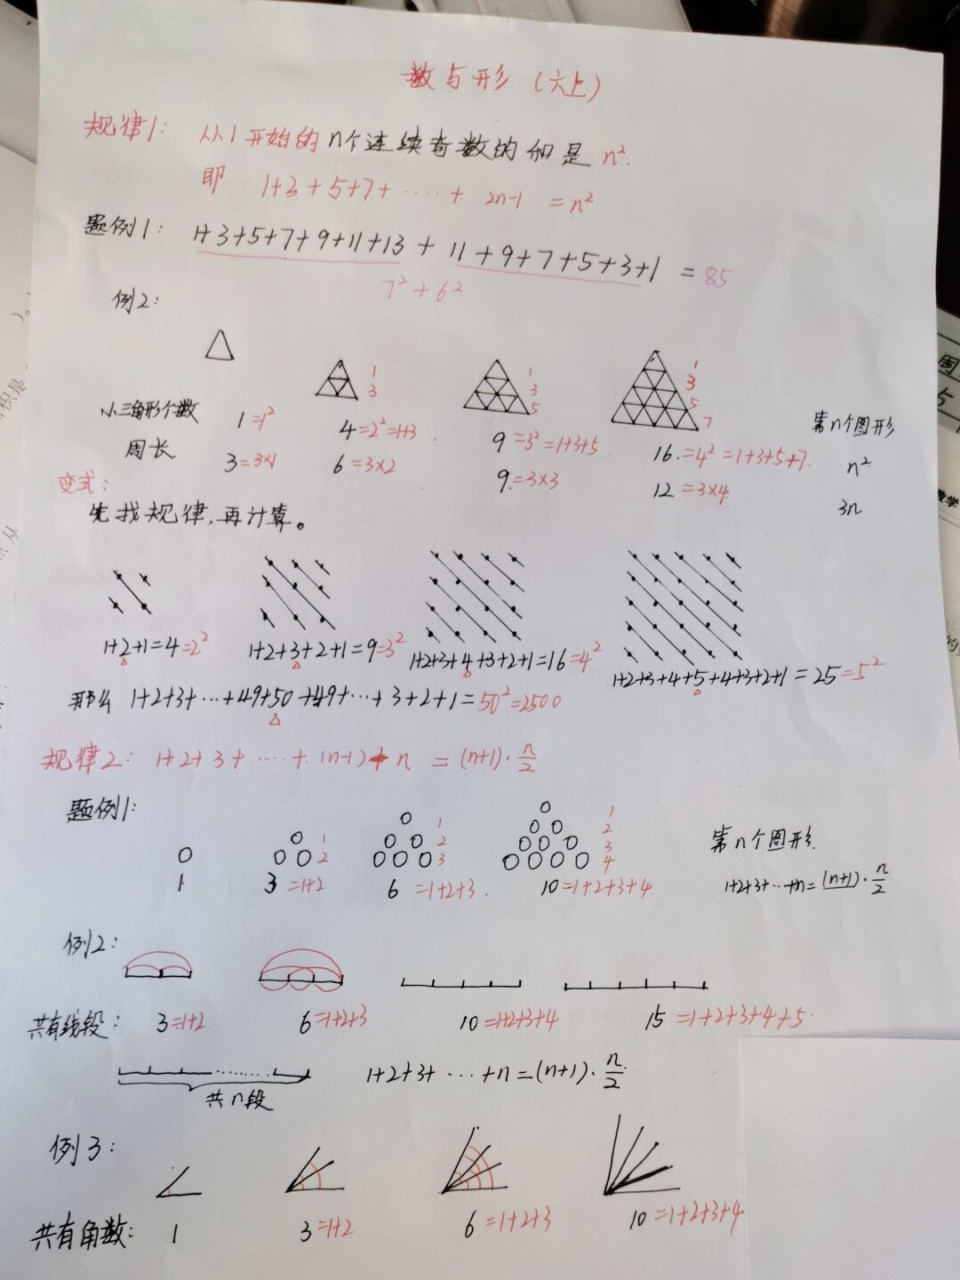 数与形（六上）
规律1： 从1开始的n个连续奇数的和是 n².
即 1+3+5+7+……+ 2n-1 = n²
题例1： 1+3+5+7+9+11+13 + 11+9+7+5+3+1 = 85
7²+6²
例2：
1
3
1
3
5
1
3
5
7
小三角形个数 1=1² 4=2²=1+3 9=3²=1+3+5 16=4²=1+3+5+7 第n个图形 n²
周长 3=3×1 6=3×2 9=3×3 12=3×4 3n
变式：
先找规律，再计算。
1+2+1=4=2² 1+2+3+2+1=9=3² 1+2+3+4+3+2+1=16=4² 1+2+3+4+5+4+3+2+1=25=5²
那么 1+2+3+…+49+50+49+…+3+2+1=50²=2500
规律2： 1+2+3+……+(n-1)+n =(n+1)·n/2
题例1：
1
2
1
2
3
1
2
3
4
第n个图形.
1 3=1+2 6=1+2+3. 10=1+2+3+4 1+2+3+…+n=(n+1)·n/2
例2：
共有线段： 3=1+2 6=1+2+3 10=1+2+3+4 15=1+2+3+4+5.
共n段 1+2+3+…+n=(n+1)·n/2
例3：
共有角数： 1 3=1+2 6=1+2+3 10=1+2+3+4